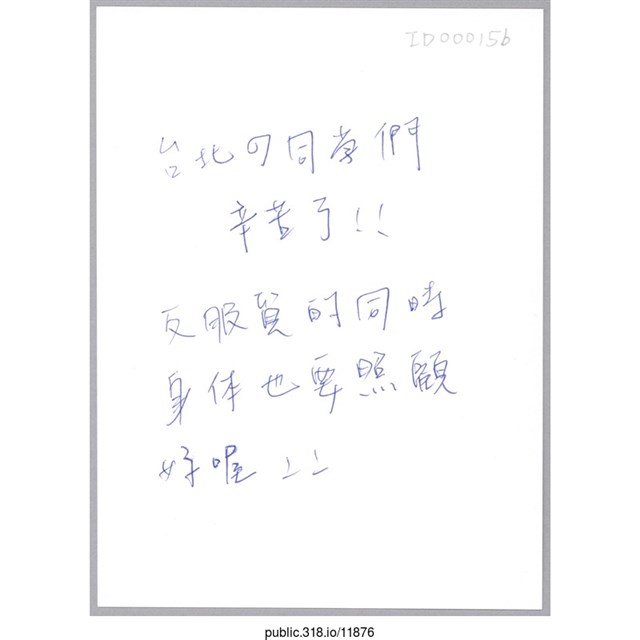 ID000156
台北的同學們
辛苦了!!
反服貿的同時
身体也要照顧
好喔!!
public.318.io/11876